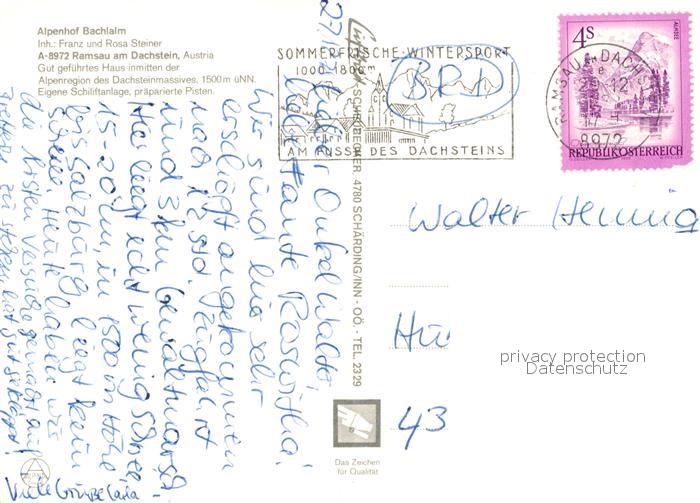 Alpenhof Bachlalm
Inh.: Franz und Rosa Steiner
A-8972 Ramsau am Dachstein, Austria
Gut geführtes Haus inmitten der
Alpenregion des Dachsteinmassives, 1500 m üNN.
Eigene Schiliftanlage, präparierte Pisten.
SOMMERFRISCHE-WINTERSPORT
1000-1800m
AM FUSSE DES DACHSTEINS
BRD
4S
ALMSEE
REPUBLIK ÖSTERREICH
RAMSAU AM DACHST
12
8972
27.12
Lieber Onkel Walter,
liebe Tante Roswitha!
Wir sind hier sehr
erschöpft angekommen
nach 12 Std. Zugfahrt
und 3 km Gewaltmarsch.
Hier liegt echt wenig Schnee
15-20 cm, in 1500 m Höhe
bis Salzburg liegt kein
Schnee. Heute haben wir
d. ersten Versuche gemacht auf
Brettern zu stehen, hat gut geklappt!
Viele Grüße Carla
SCHIEBECKER, 4780 SCHÄRDING/INN - OÖ. - TEL. 2329
Walter Henning
43
privacy protection
Datenschutz
Das Zeichen
für Qualität